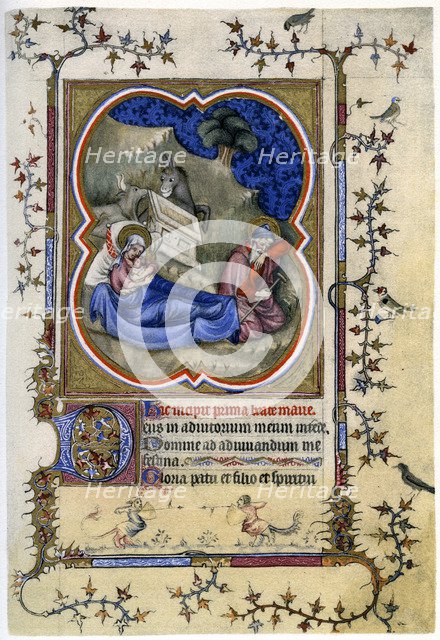 Heritage Heritage
Heritage Heritage
Heritage Heritage
Hic incipit prima beate marie
Deus in adiutorium meum intẽde
Domine ad adiuuandum me
festina.
Gloria patri et filio et spiritui
Heritage Heritage